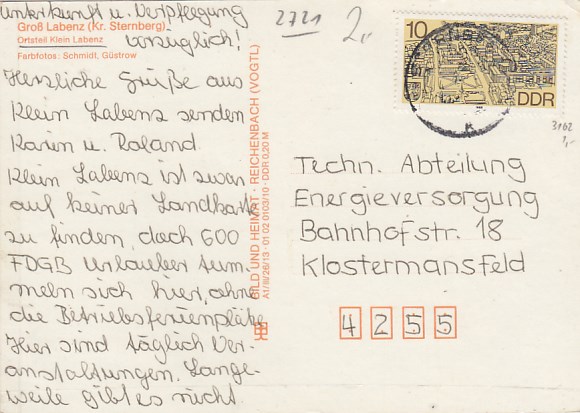 Unterkunft u. Verpflegung
vorzüglich!
Groß Labenz (Kr. Sternberg)
Ortsteil Klein Labenz
Farbfotos: Schmidt, Güstrow
Herzliche Grüße aus
Klein Labenz senden
Karin u. Roland
Klein Labenz ist zwar
auf keiner Landkarte
zu finden, doch 600
FDGB Urlauber tum-
meln sich hier, ohne
die Betriebsferienplätze
Hier sind täglich Ver-
anstaltungen. Lange-
weile gibt es nicht.
BILD UND HEIMAT · REICHENBACH (VOGTL)
A1/III/26/13 · 01 02 0103/10 · DDR 0,20 M
2721
2,-
10
DDR
3162
1,-
Techn. Abteilung
Energieversorgung
Bahnhofstr. 18
Klostermansfeld
4255